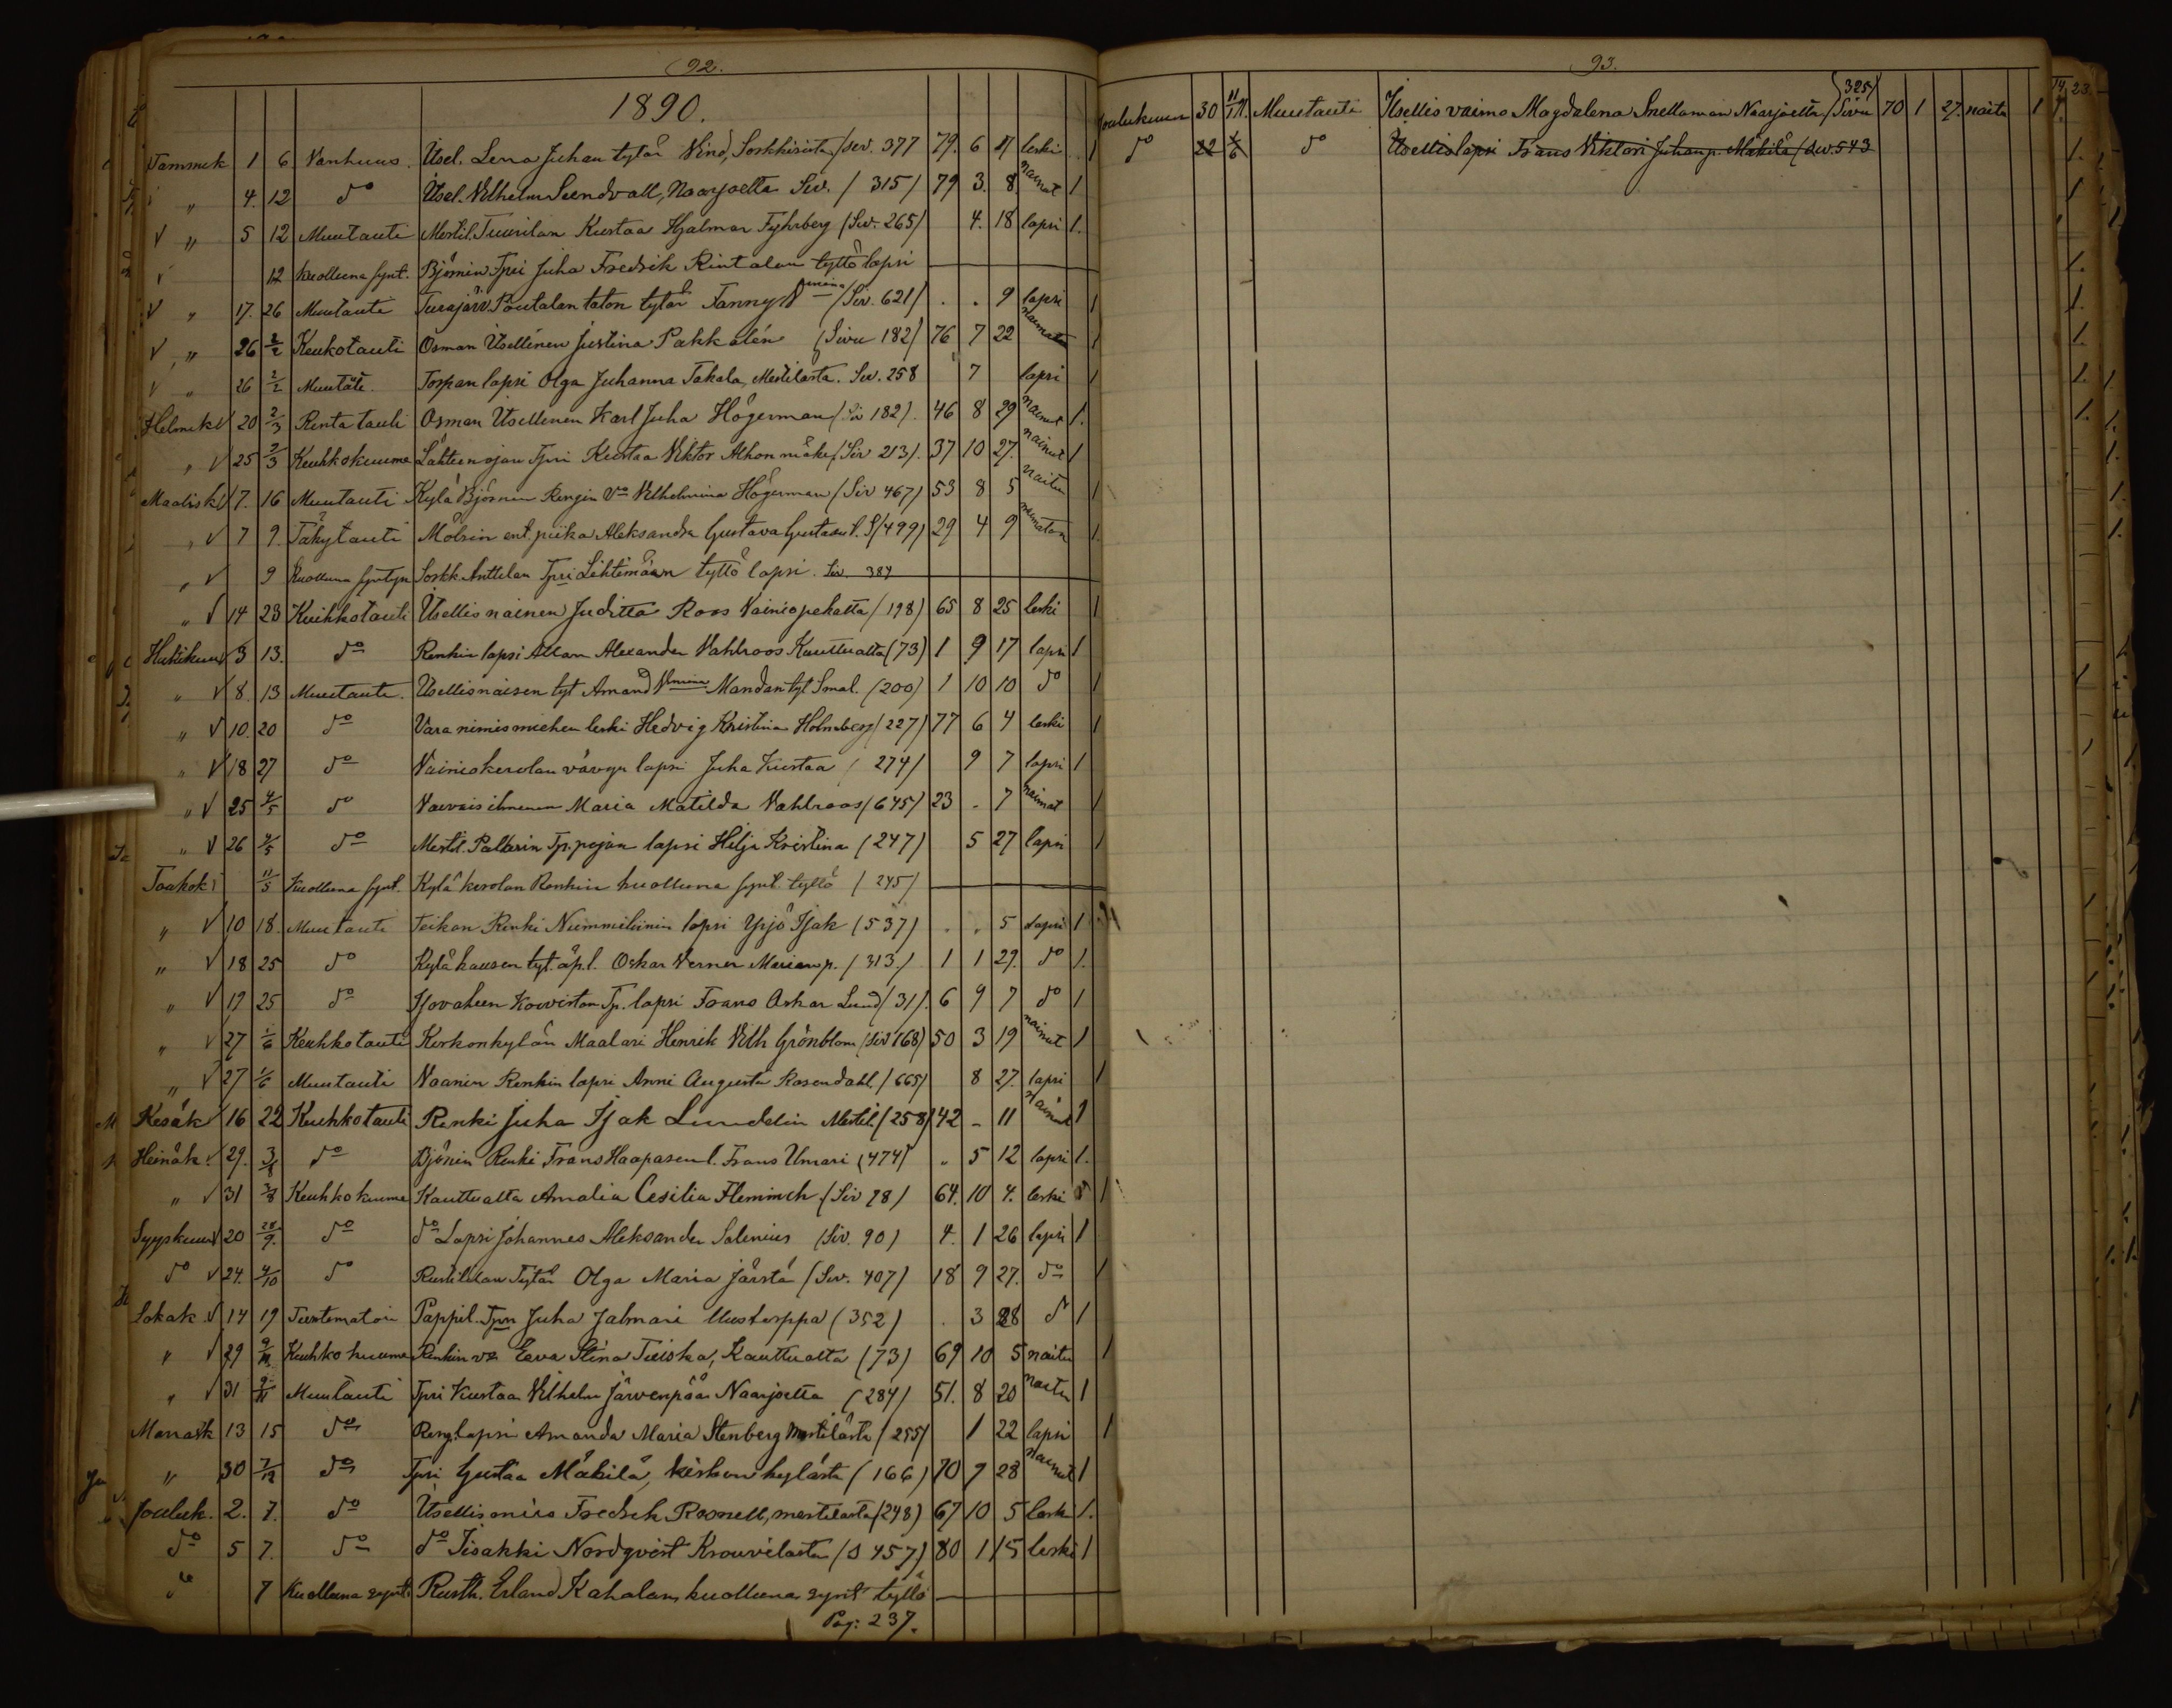 92.
1890.
Tammck 1 6 Vanhuus. Itsel. Lena Juhan tytär Vind, Sorkkisista /siv. 377 79. 6 11 leski 1
" 4. 12 do Itsel. Vilhelm Sundvall, Naarjoelta Siv. / 315/ 79 3. 8 nainut 1
√ " 5 12 Muutauti Mestil. Tuurilan Kustaa Hjalmar Fyhrberg (Siv. 265) 4. 18 lapsi 1.
√ 12 kuolluna synt. Björnin Tpri Juha Fredrik Rintalan tyttö lapsi
√ " 17. 26 Muutauti Turajärv. Poutalan talon tytär Fanny Vmiina (Siv. 621) . . 9 lapsi 1
√ " 26 2/2 Keuhkotauti Osman Itsellinen Justina Pakkalén (Sivu 182) 76 7 22 1
√ " 26 2/2 Muutati. Torpan lapsi Olga Juhanna Takala, Mestilästä. Siv. 258 7 lapsi 1
Helmek √ 20 2/3 Rinta tauti Osman Itsellinen Karl Juha Högerman (Siv 182). 46 8 29 nainut 1.
" √ 25 2/3 Keuhkokuume Lähteenojan Tpri Kustaa Viktor Ahonmäki (Siv 213). 37 10 27. nainut 1
Maalisk √ 7. 16 Muutauti Kylä Björnin Rengin Vo Vilhelmina Högerman (Siv 467) 53 8 5 naitu 1
" √ 7 9. Täkytauti Mölsin ent. piika Aleksandra Gustava Gustasd. S/499) 29 4 9 naimaton 1.
" √ 9 Kuolluna syntyn Sorkk. Anttilan Tpri Lehtimään tyttö lapsi. Siv. 387
" √ 14 23 Keuhkotauti Itsellis nainen Juditta Roos Vainiopekalta (198) 65 8 25 leski 1
Huhtikuu √ 3 13. do Renkin lapsi Allan Alexander Vahlroos Kauttualta (73) 1 9 17 lapsi 1
" √ 8. 13 Muutauti. Itsellisnaisen tyt Amanda Vlmina Mandan tyt Smal. (200) 1 10 10 do 1
" √ 10. 20 do Vara nimismiehen leski Hedvig Kristina Holmberg (227) 77 6 4 leski 1
" √ 18 27 do Vainiokerolan vävyn lapsi Juha Kustaa ( 274) 9 7 lapsi 1
" √ 25 4/5 do Vaivais ihminen Maria Matilda Vahlroos (645) 23 - 7 naimat 1
" √ 26 4/5 do Mestil. Paltarin Tp. pojan lapsi Hilja Kristina (247) 5 27 lapsi 1
Toukok √ 11/5 Kuolluna synt. Kylä kerolan Renkin kuolluna synt. tyttö (245)
" √ 10 18. Muutauti Teikan Renki Nummilinin lapsi Yrjö Isak (537) . . 5 lapsi 1
" √ 18 25 do Kylä hausen tyt. äp. l. Oskar Verner Marian p. (313.) 1 1 29. do 1.
" √ 19 25 do Isovaheen Koiviston Tp. lapsi Frans Oskar Lund (31). 6 9 7 do 1
" √ 27 1/6 Keuhkotauti Kirkonkylän Maalari Henrik Vilh Grönblom (siv 168) 50 3 19 nainut 1
" √ 27 1/6 Muutauti Naanin Renkin lapsi Anni Augusta Rosendahl (665) 8 27. lapsi 1
Kesäk √ 16 22 Keuhkotauti Renki Juha Isak Lundelin Mestil. (258) 42 - 11 nainut 1
Heinäk √ 29. 3/8 do Björnin Renki Frans Haapasen l. Frans Urnari (474) " 5 12 lapsi 1.
" √ 31 3/8 Keuhkokuume Kauttualta Amalia Cesilia Flemmich (Siv 78) 64. 10 4. leski 1
Syyskuu √ 20 28/9. do do Lapsi Johannes Aleksander Salenius (Siv. 90) 4. 1 26 lapsi 1
do √ 24. 4/10 do Rustitilan Tytär Olga Maria Järstä (Siv. 407) 18 9 27. do 1
Lokak. √ 14 19 Tuntematoin Pappil. Tprn Juha Jalmari Uustorppa (352) . 3 28 do 1
" √ 29 9/11 Keuhko kuume Renkin vo Eeva Stina Tuiska, Kauttualta (73) 69 10 5 naitu 1
" √ 31 9/11 Muutauti Tpri Kustaa Vilhelm Järvenpää Naarjoelta (284) 51. 8 20 naitu 1
Marrask 13 15 do Reng. lapsi Amanda Maria Stenberg Mestilästä (255) 1 22 lapsi 1
" 30 7/12 do Tpri Gustaa Mäkilä, kirkon kylästä (166) 70 7 28 nainut 1
Jouluk. 2. 7. do Itsellismies Fredrik Rosnell, mestilästä (248) 67 10 5 leski 1.
do 5 7. do do Iisakki Nordqvist Krouvilasta (S 457) 80 1 15 leski 1
do 7 Kuolluna synt. Rusth. Erland Kahalan, kuolluna synt tyttö
Pag: 237.
93.
Joulukuun 30 11/1 91. Muutauti Itsellis vaimo Magdalena Snellaman Naarjoelta (Sivu 325) 70 1 27. naitu 1
do 22 4/6 do Itsellislapsi Frans Viktori Juhan p. Mäkilä (siv. 543